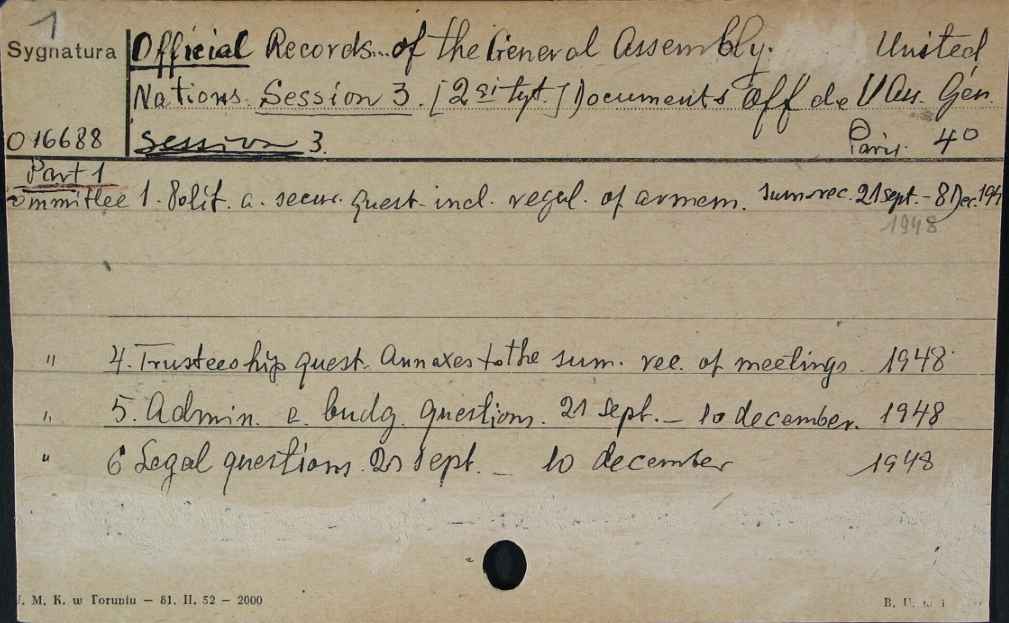 1
Sygnatura Official Records of the General Assembly. United
Nations. Session 3. [2gi tyt.] Documents off de l'Ass. Gén.
016688 Session 3. Paris. 4°
Part 1
Committee 1. Polit. a. secur. quest. incl. regul. of armem. Sum. rec. 21 sept. – 8 Dec. 194
1948
" 4. Trusteeship quest. Annexes to the sum. rec. of meetings. 1948
" 5. Admin. e. budg. questions. 21 sept. – 10 december. 1948
" 6 Legal questions. 21 sept. – 10 december 1948
. M. K. w Toruniu — 81. II. 52 — 2000 B. U. w